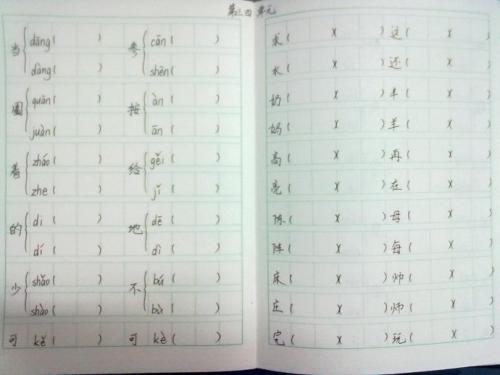 第三四单元
当 dāng ( ) 参 cān ( )
dàng ( ) shēn ( )
圈 quān ( ) 按 àn ( )
juàn ( ) ān ( )
着 zháo ( ) 给 gěi ( )
zhe ( ) jǐ ( )
的 di ( ) 地 dē ( )
dí ( ) dì ( )
少 shǎo ( ) 不 bú ( )
shào ( ) bù ( )
可 kě ( ) 可 kè ( )
求 ( )( ) 这 ( )( )
水 ( )( ) 还 ( )( )
奶 ( )( ) 丰 ( )( )
妈 ( )( ) 羊 ( )( )
高 ( )( ) 再 ( )( )
亮 ( )( ) 在 ( )( )
陈 ( )( ) 母 ( )( )
阵 ( )( ) 每 ( )( )
床 ( )( ) 帅 ( )( )
庄 ( )( ) 师 ( )( )
完 ( )( ) 玩 ( )( )